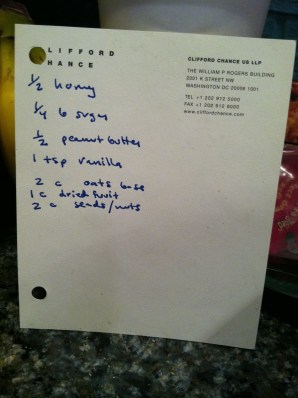 CLIFFORD
CHANCE
CLIFFORD CHANCE US LLP
THE WILLIAM P ROGERS BUILDING
2001 K STREET NW
WASHINGTON DC 20006 1001
TEL +1 202 912 5000
FAX +1 202 912 6000
www.cliffordchance.com
1/2 honey
1/4 b sugar
1/2 peanut butter
1 tsp vanilla
2 c oats base
1 c dried fruit
2 c seeds/nuts